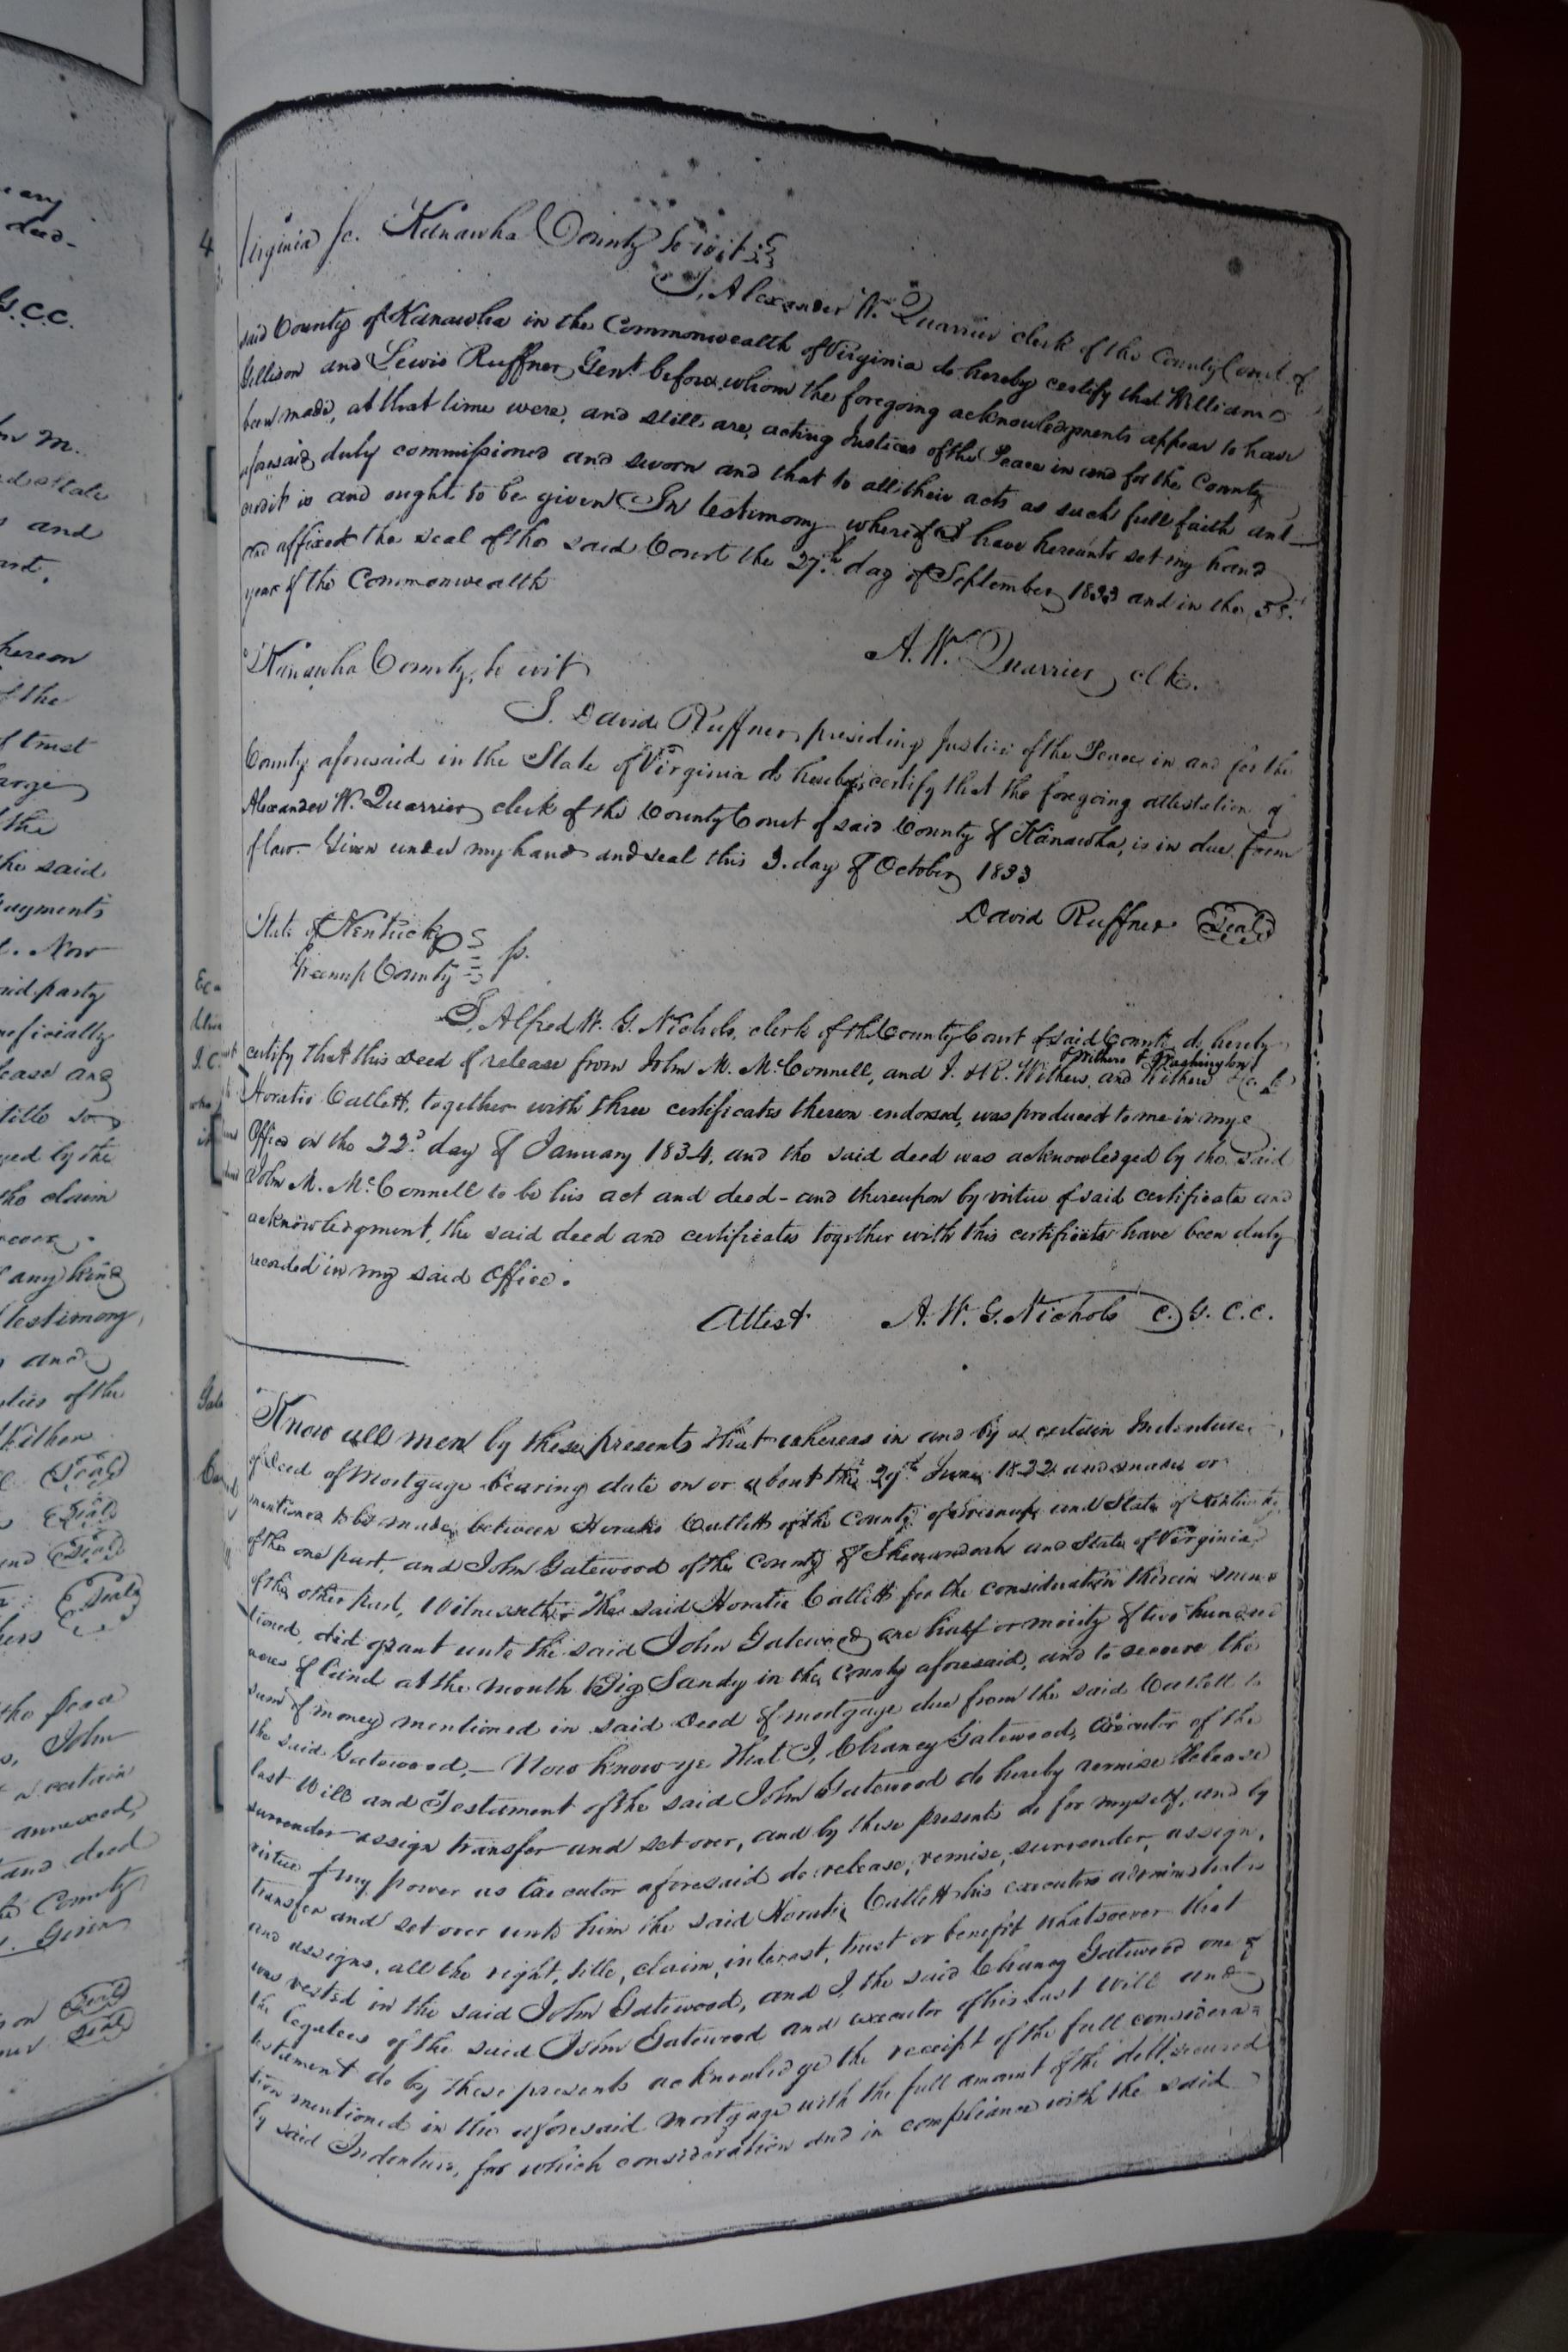 Virginia Sc. Kanawha County to wit
I, Alexander W. Quarrier clerk of the County Court of
said County of Kanawha in the Commonwealth of Virginia do hereby certify that William
Gillison and Lewis Ruffner, Gent. before whom the foregoing acknowledgments appear to have
been made, at that time were, and still are, acting Justices of the Peace in and for the County
aforesaid, duly commissioned and sworn and that to all their acts as such full faith and
credit is and ought to be given. In testimony whereof I have hereunto set my hand
and affixed the seal of the said Court the 27th. day of September 1833 and in the 58th
year of the Commonwealth
A. W. Quarrier clk.
Kanawha County, to wit
I. David Ruffner, presiding Justice of the Peace in and for the
County aforesaid in the State of Virginia do hereby certify that the foregoing attestation of
Alexander W. Quarrier clerk of the County Court of said County of Kanawha, is in due form
of law. Given under my hand and seal this 3. day of October 1833
David Ruffner Seal
State of Kentucky
Greenup County Sc.
I, Alfred W. G. Nichols, clerk of the County Court of said County do hereby
of Withers & Washington
certify that this Deed of release from John M. McConnell, and J. & R. Withers, and Withers to
Horatio Catlett, together with three certificates thereon endorsed, was produced to me in my
Office on the 22d. day of January 1834, and the said deed was acknowledged by the said
John M. McConnell to be his act and deed - and thereupon by virtue of said certificates and
acknowledgment, the said deed and certificates together with this certificate have been duly
recorded in my said Office.
Attest A. W. G. Nichols C. G. C. C.
Know all men by these presents that whereas in and by a certain Indenture
of Deed of Mortgage bearing date on or about the 29th June 1822 and made or
mentioned to be made, between Horatio Catlett of the County of Greenup and State of Kentucky
of the one part, and John Gatewood of the County of Shenandoah and State of Virginia
of the other part, Witnesseth: The said Horatio Catlett for the consideration therein men=
tioned, did grant unto the said John Gatewood one half or moiety of two hundred
acres of land at the mouth Big Sandy in the County aforesaid, and to secure the
sum of money mentioned in said Deed of mortgage due from the said Catlett to
the said Gatewood. — Now know ye that I, Chaney Gatewood, Executor of the
last Will and Testament of the said John Gatewood do hereby remise Release
surrender assign transfer and set over, and by these presents do for myself, and by
virtue of my power as Executor aforesaid do release, remise, surrender, assign,
transfer and set over unto him the said Horatio Catlett his executors administrators
and assigns, all the right, title, claim, interest, trust or benefit whatsoever that
was vested in the said John Gatewood, and I, the said Chaney Gatewood one of
the legatees of the said John Gatewood and executor of his last Will and
testament do by these presents acknowledge the receipt of the full considera=
tion mentioned in the aforesaid mortgage with the full amount of the debt, secured
by said Indenture, for which consideration and in compliance with the said